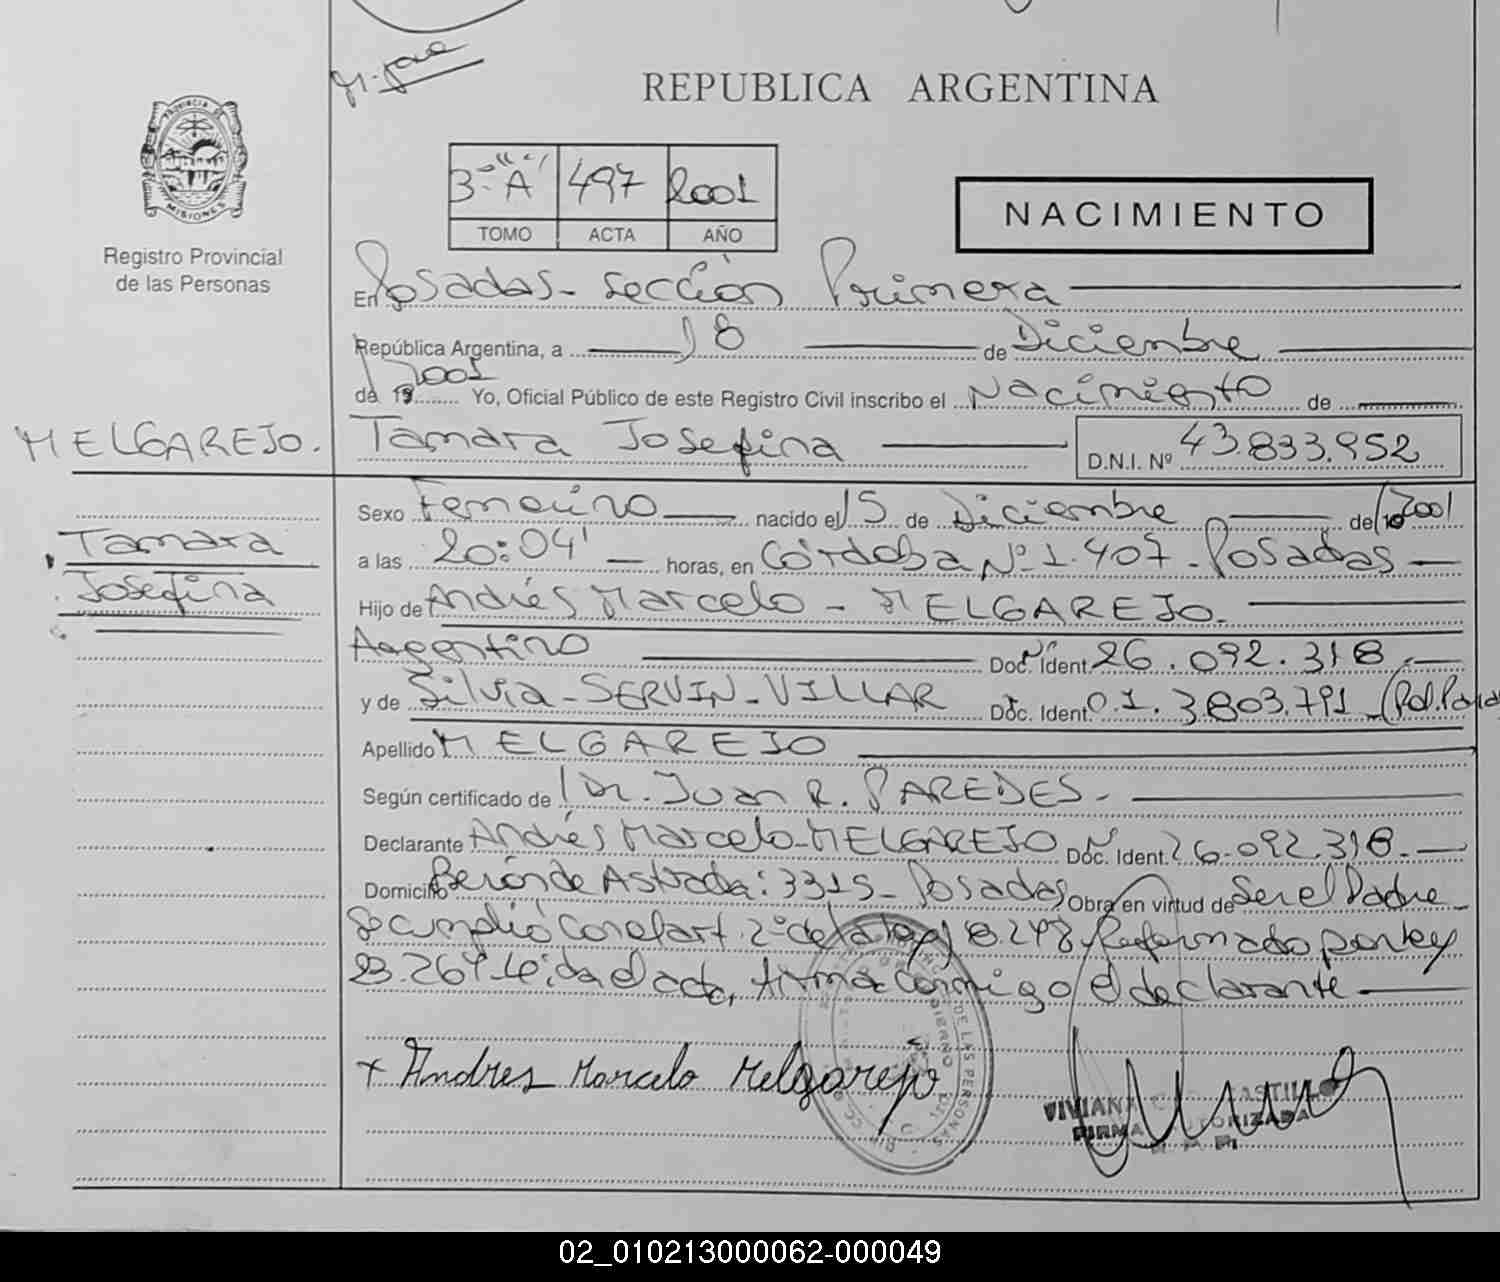 M. Jose
REPUBLICA ARGENTINA
PROVINCIA DE
MISIONES
Registro Provincial
de las Personas
3º "A" 497 2001
TOMO ACTA AÑO
NACIMIENTO
En Posadas - Sección Primera
República Argentina, a 18 de Diciembre
de 19 2001 Yo, Oficial Público de este Registro Civil inscribo el Nacimiento de
MELGAREJO. Tamara Josefina D.N.I. Nº 43.833.952
Sexo Femenino nacido el 15 de Diciembre de 2001
Tamara
a las 20:04' horas, en Córdoba Nº 1.407 - Posadas
Josefina
Hijo de Andrés Marcelo - MELGAREJO.
Argentino Doc. Ident. 26.092.318
y de Silvia - SERVIN - VILLAR Doc. Ident. 01.3803.791 (Pol.
Apellido MELGAREJO
Según certificado de Dr. Juan R. PAREDES -
Declarante Andrés Marcelo - MELGAREJO Doc. Ident. 26.092.318.
Domicilio Berón de Astrada: 3315 - Posadas Obra en virtud de Ser el Padre
Se cumplió con el art. 2º de la ley 18.248 Reformado por ley
23.264 Leída el acta, firma conmigo el declarante
+ Andres Marcelo Melgarejo
DE LAS PERSONAS
VIVIANA CASTILLO
FIRMA AUTORIZADA
02_010213000062-000049